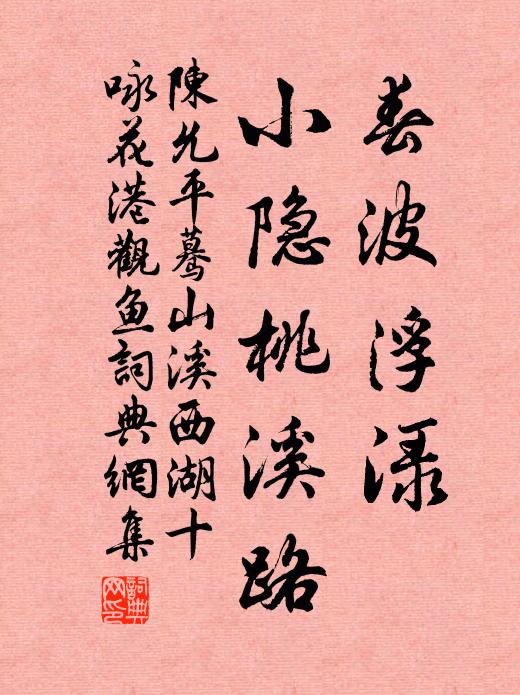 春波浮渌
小隐桃溪路
陳允平驀山溪西湖十
咏花港觀鱼詞典網集
詞典网印